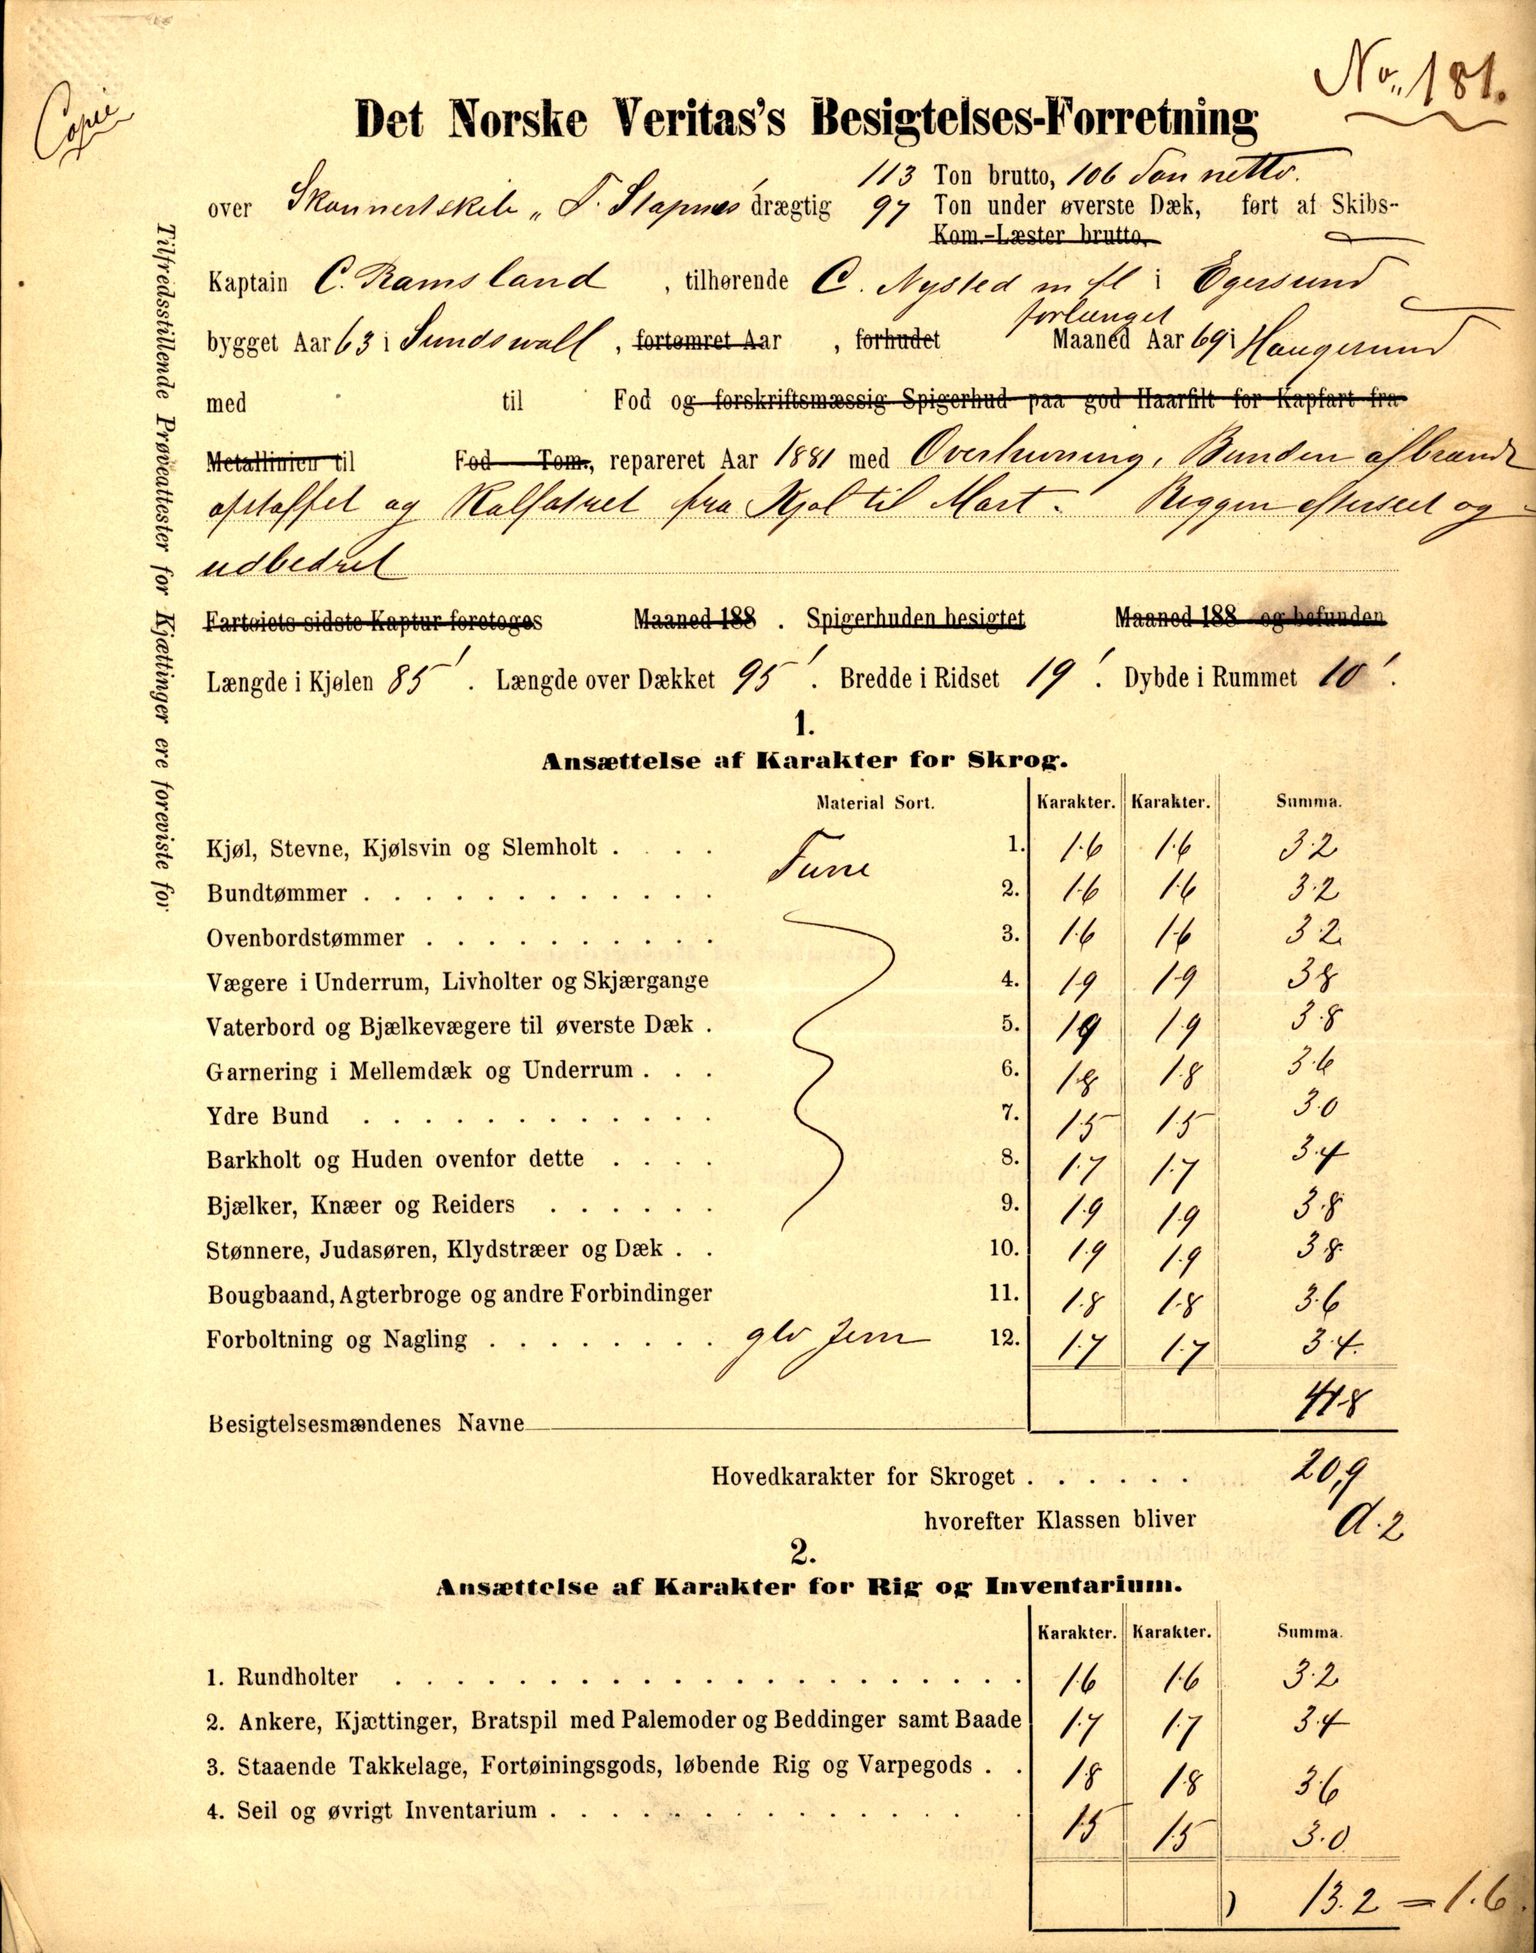 Copie
No. 181.
Det Norske Veritas's Besigtelses-Forretning
113 Ton brutto, 106 Ton netto.
over Skonnertskib „T. Stapnes drægtig 97 Ton under øverste Dæk, ført af Skibs-
Kom.-Læster brutto,
Kaptain C. Ramsland, tilhørende C. Nysted m fl i Egersund
forlænget
bygget Aar 63 i Sundswall, fortømret Aar , forhudet Maaned Aar 69 i Haugesund
med til Fod og forskriftsmæssig Spigerhud paa god Haarfilt for Kapfart fra
Metallinien til Fod Tom., repareret Aar 1881 med Overhuning, Bunden afbrændt
og Kalfatret fra Kjøl til Mart. Riggen efterseet og
udbedret
Fartøiets sidste Kaptur foretoges Maaned 188 . Spigerhuden besigtet Maaned 188 og befunden
Længde i Kjølen 85'. Længde over Dækket 95'. Bredde i Ridset 19'. Dybde i Rummet 10'.
1.
Ansættelse af Karakter for Skrog.
Material Sort. Karakter. Karakter. Summa.
Kjøl, Stevne, Kjølsvin og Slemholt . . . . Furre 1. 1.6 1.6 3.2
Bundtømmer . . . . . . . . . . . . 2. 1.6 1.6 3.2
Ovenbordstømmer . . . . . . . . . . 3. 1.6 1.6 3.2
Vægere i Underrum, Livholter og Skjærgange 4. 1.9 1.9 3.8
Vaterbord og Bjælkevægere til øverste Dæk . 5. 1.9 1.9 3.8
Garnering i Mellemdæk og Underrum . . . 6. 1.8 1.8 3.6
Ydre Bund . . . . . . . . . . . . 7. 1.5 1.5 3.0
Barkholt og Huden ovenfor dette . . . . 8. 1.7 1.7 3.4
Bjælker, Knæer og Reiders . . . . . . 9. 1.9 1.9 3.8
Stønnere, Judasøren, Klydstræer og Dæk . . 10. 1.9 1.9 3.8
Bougbaand, Agterbroge og andre Forbindinger 11. 1.8 1.8 3.6
Forboltning og Nagling . . . . . . . . glv Jern 12. 1.7 1.7 3.4
41.8
Besigtelsesmændenes Navne
Hovedkarakter for Skroget . . . . . . 20,9
hvorefter Klassen bliver A.2
2.
Ansættelse af Karakter for Rig og Inventarium.
Karakter. Karakter. Summa.
1. Rundholter . . . . . . . . . . . . . . . . . . . . 1.6 1.6 3.2
2. Ankere, Kjættinger, Bratspil med Palemoder og Beddinger samt Baade 1.7 1.7 3.4
3. Staaende Takkelage, Fortøiningsgods, løbende Rig og Varpegods . . 1.8 1.8 3.6
4. Seil og øvrigt Inventarium . . . . . . . . . . . . . . 1.5 1.5 3.0
13.2 = 1.6.
Tilfredsstillende Prøveattester for Kjættinger ere foreviste for